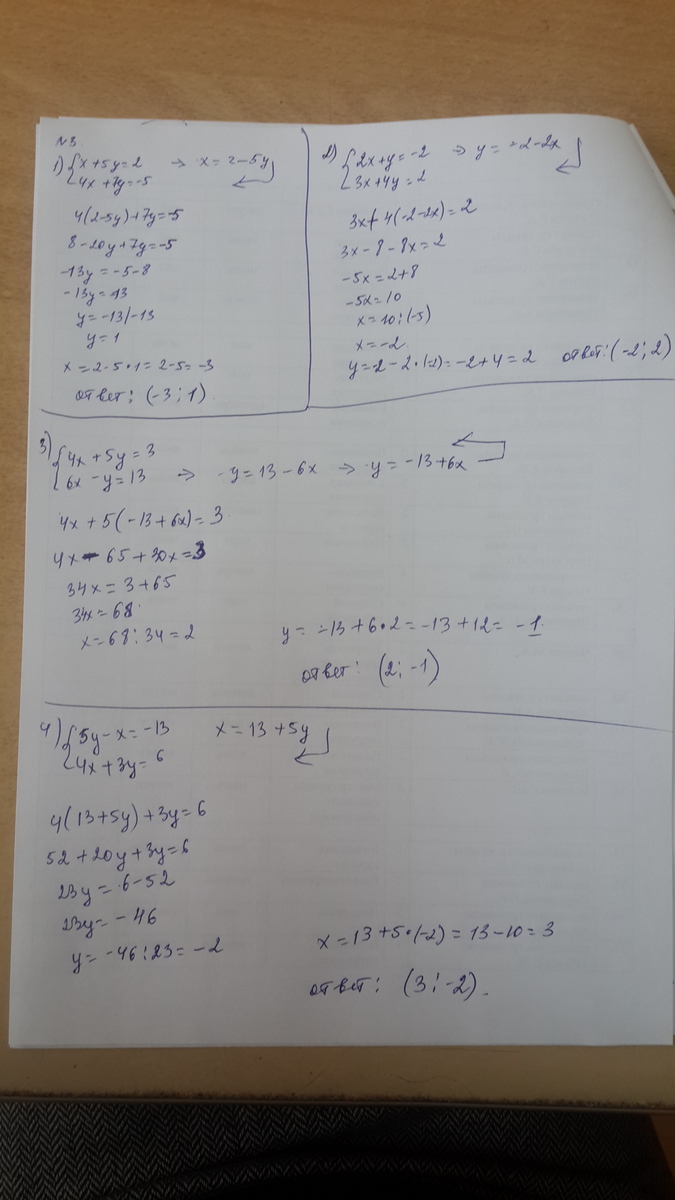 №3
1) { x + 5y = 2 → x = 2 - 5y
4x + 7y = -5
4(2-5y) + 7y = -5
8 - 20y + 7y = -5
-13y = -5-8
-13y = -13
y = -13/-13
y = 1
x = 2 - 5 • 1 = 2 - 5 = -3
ответ: (-3; 1)
2) { 2x + y = -2 → y = -2-2x
3x + 4y = 2
3x + 4(-2-2x) = 2
3x - 8 - 8x = 2
-5x = 2+8
-5x = 10
x = 10 : (-5)
x = -2
y = -2 - 2 • (-2) = -2 + 4 = 2 ответ: (-2; 2)
3) { 4x + 5y = 3
6x - y = 13 → -y = 13 - 6x → y = -13 + 6x
4x + 5(-13 + 6x) = 3
4x - 65 + 30x = 3
34x = 3 + 65
34x = 68
x = 68 : 34 = 2
y = -13 + 6 • 2 = -13 + 12 = -1
ответ: (2; -1)
4) { 5y - x = -13 x = 13 + 5y
4x + 3y = 6
4(13 + 5y) + 3y = 6
52 + 20y + 3y = 6
23y = 6 - 52
23y = -46
y = -46 : 23 = -2
x = 13 + 5 • (-2) = 13 - 10 = 3
ответ: (3; -2).